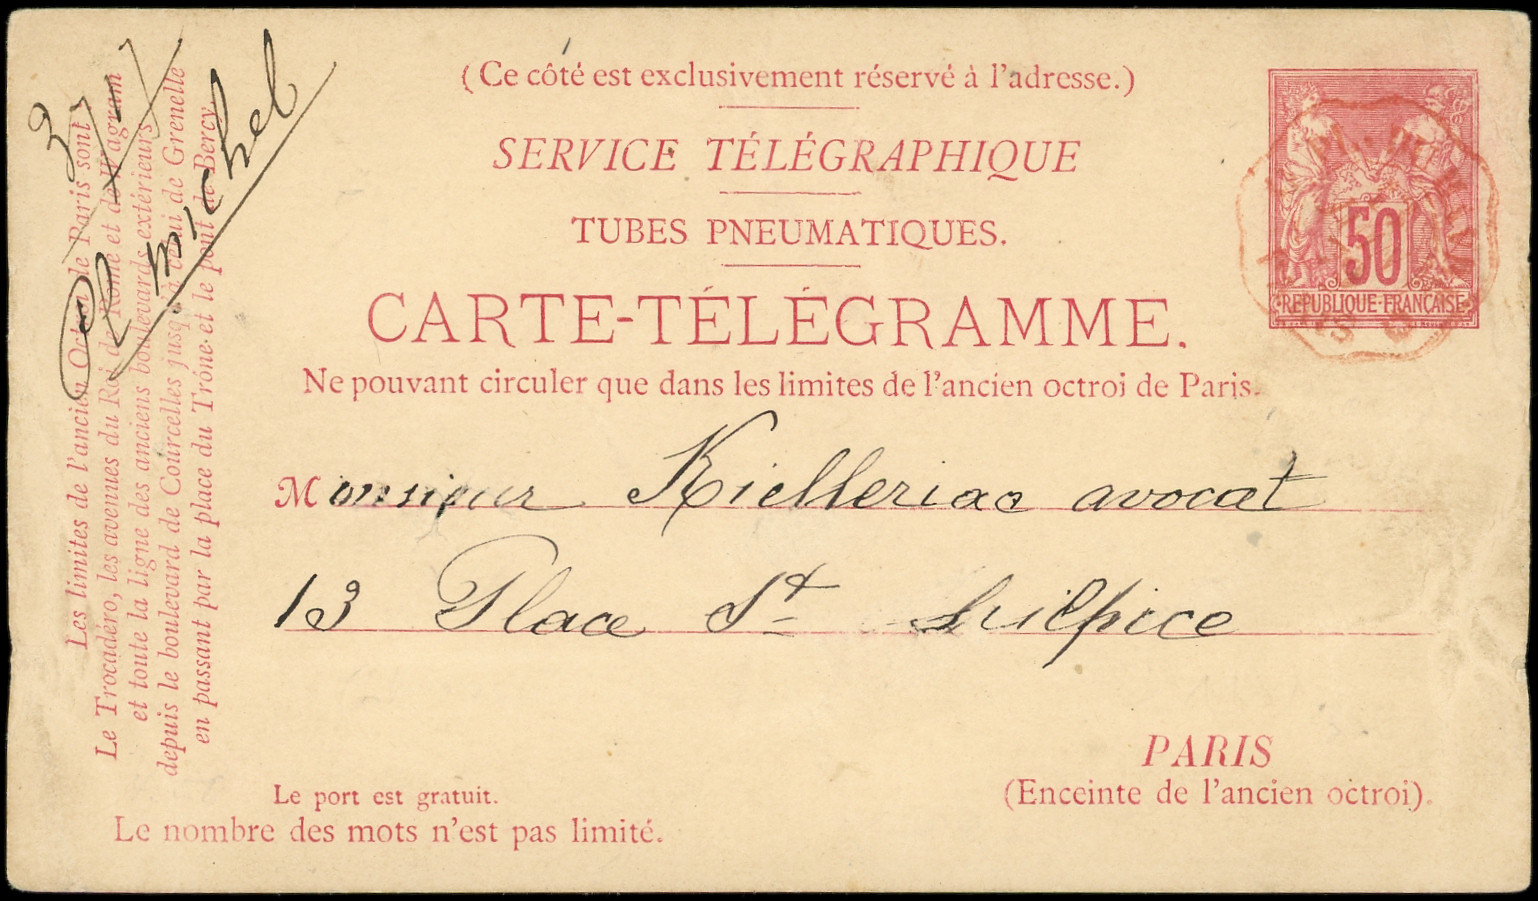 (Ce côté est exclusivement réservé à l'adresse.)
SERVICE TÉLÉGRAPHIQUE
TUBES PNEUMATIQUES.
CARTE-TÉLÉGRAMME.
Ne pouvant circuler que dans les limites de l'ancien octroi de Paris.
50
REPUBLIQUE·FRANÇAISE
Monsieur Kielleriac avocat
13 Place St Sulpice
PARIS
(Enceinte de l'ancien octroi).
Le port est gratuit.
Le nombre des mots n'est pas limité.
Les limites de l'ancien Octroi de Paris sont
Le Trocadéro, les avenues du Roi de Rome et de Wagram
et toute la ligne des anciens boulevards extérieurs
depuis le boulevard de Courcelles jusqu'à celui de Grenelle
en passant par la place du Trône et le pont de Bercy
R michel